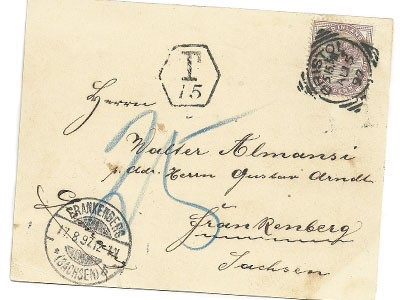 T
15
BRISTOL
Herrn
25
Walter Almansi
p. Adr. Herrn Gustav Arndt
Frankenberg
Sachsen
FRANKENBERG
17.8.97.12-1
(SACHSEN)